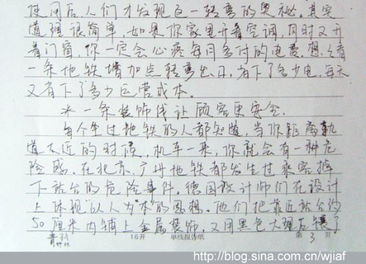 使用后人们才发现这一转弯的奥秘。其实
道理很简单，如果你家里开着空调，同时又开
着门窗，你一定会心疼每月多付的电费。想想看
一条地铁增加点转弯出口，省下了多少电，每天
又省下了多少运营成本。
*一条装饰线让顾客更安全
每个坐过地铁的人都知道，当你距离轨
道太近的时候，机车一来，你就会有一种危
险感。在北京、广州地铁都发生过乘客掉
下站台的危险事件。德国设计师们在设计
上体现"以人为本"的思想。他们把靠近站台约
50厘米内铺上金属装饰，又用黑色大理石镶了
16开 单线报告纸
第3页
http://blog.sina.com.cn/wjiaf